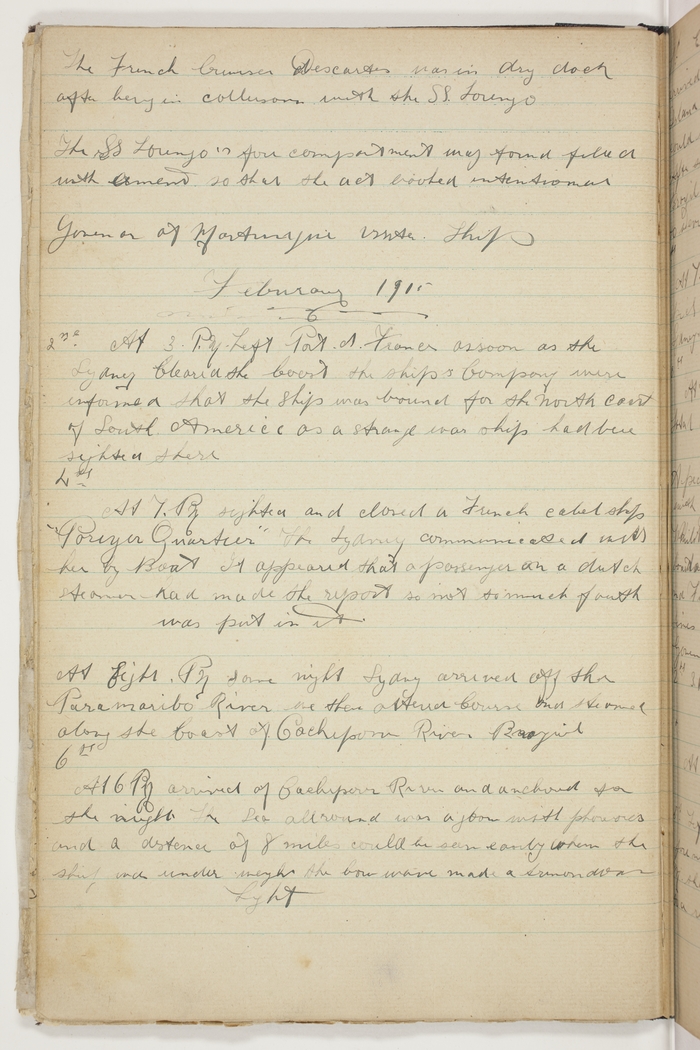 The French Cruiser Descartes was in dry dock
after being in collision with the SS. Lorenzo
The SS Lorenzo's fore compartment was found filled
with cement so that the act looked intentional
Govenor of Martinique visits Ship
Feburary 1915
2nd At 3. P.M. Left Port. d. France assoon as the
Sydney Cleared the Coast the ships Company were
informed that the Ship was bound for the North Coast
of South America as a strange war ship had been
sighted there
4th
At 7. PM sighted and closed a French cabel ship
"Pouyer Quartier" The Sydney communicated with
her by Boat It appeared that a passenger on a dutch
steamer had made the report so not somuch faith
was put in it.
At Eight. PM same night Sydney arrived off the
Paramaribo River we then altered Course and steamed
along the Coast of Cachipour River Brazil
6th
At 6 PM arrived of Cachipour River and anchored for
the night The Sea allround was aglow with
and a distence of 8 miles could be seen easily when the
ship was under weigh the bow wave made a
Light